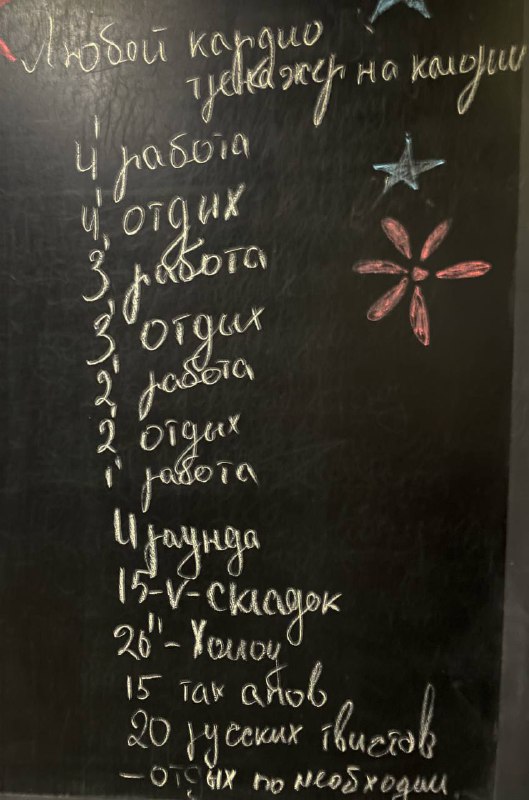 Любой кардио
тренажер на калории
4' работа
4' отдых
3' работа
3' отдых
2' работа
2' отдых
1' работа
4 раунда
15-V-складок
20"-Холоу
15 так апов
20 русских твистов
- отдых по необходим